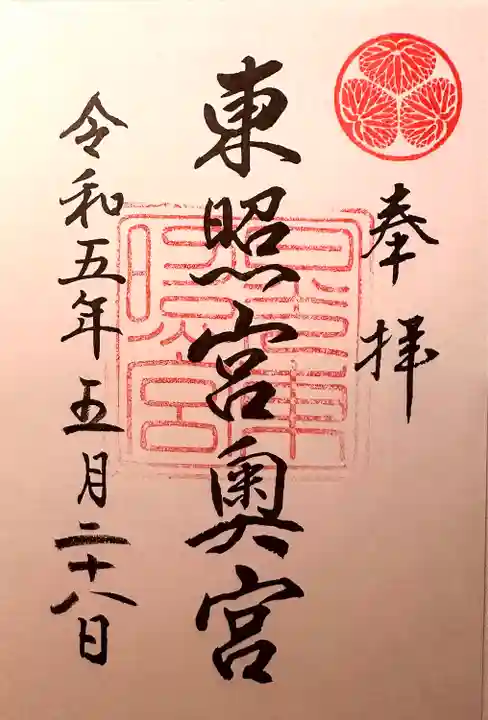 奉拝
東照宮奥宮
令和五年五月二十八日